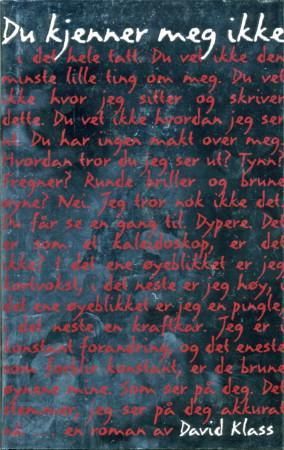 Du kjenner meg ikke
i det hele tatt. Du vet ikke den
minste lille ting om meg. Du vet
ikke hvor jeg sitter og skriver
dette. Du vet ikke hvordan jeg ser
ut. Du har ingen makt over meg.
Hvordan tror du jeg ser ut? Tynn?
Fregner? Runde briller og brune
øyne? Nei. Jeg tror nok ikke det.
Du får se en gang til. Dypere. Det
er som et kaleidoskop, er det
ikke? I det ene øyeblikket er jeg
kortvokst, i det neste er jeg høy, i
det ene øyeblikket er jeg en pingle,
i det neste en kraftkar. Jeg er i
konstant forandring, og det eneste
som forblir konstant, er de brune
øynene mine. Som ser på deg. Det
stemmer, jeg ser på deg akkurat
nå ... en roman av David Klass